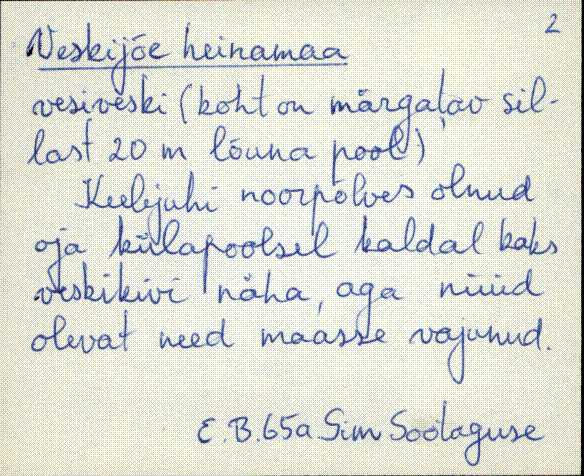 2
Veskijõe heinamaa
vesiveski (koht on märgatav sil-
last 20 m lõuna pool)
Keelejuhi noorpõlves olnud
oja külapoolsel kaldal kaks
veskikivi näha, aga nüüd
olevat need maasse vajunud.
E.B. 65a Sim Soolaguse